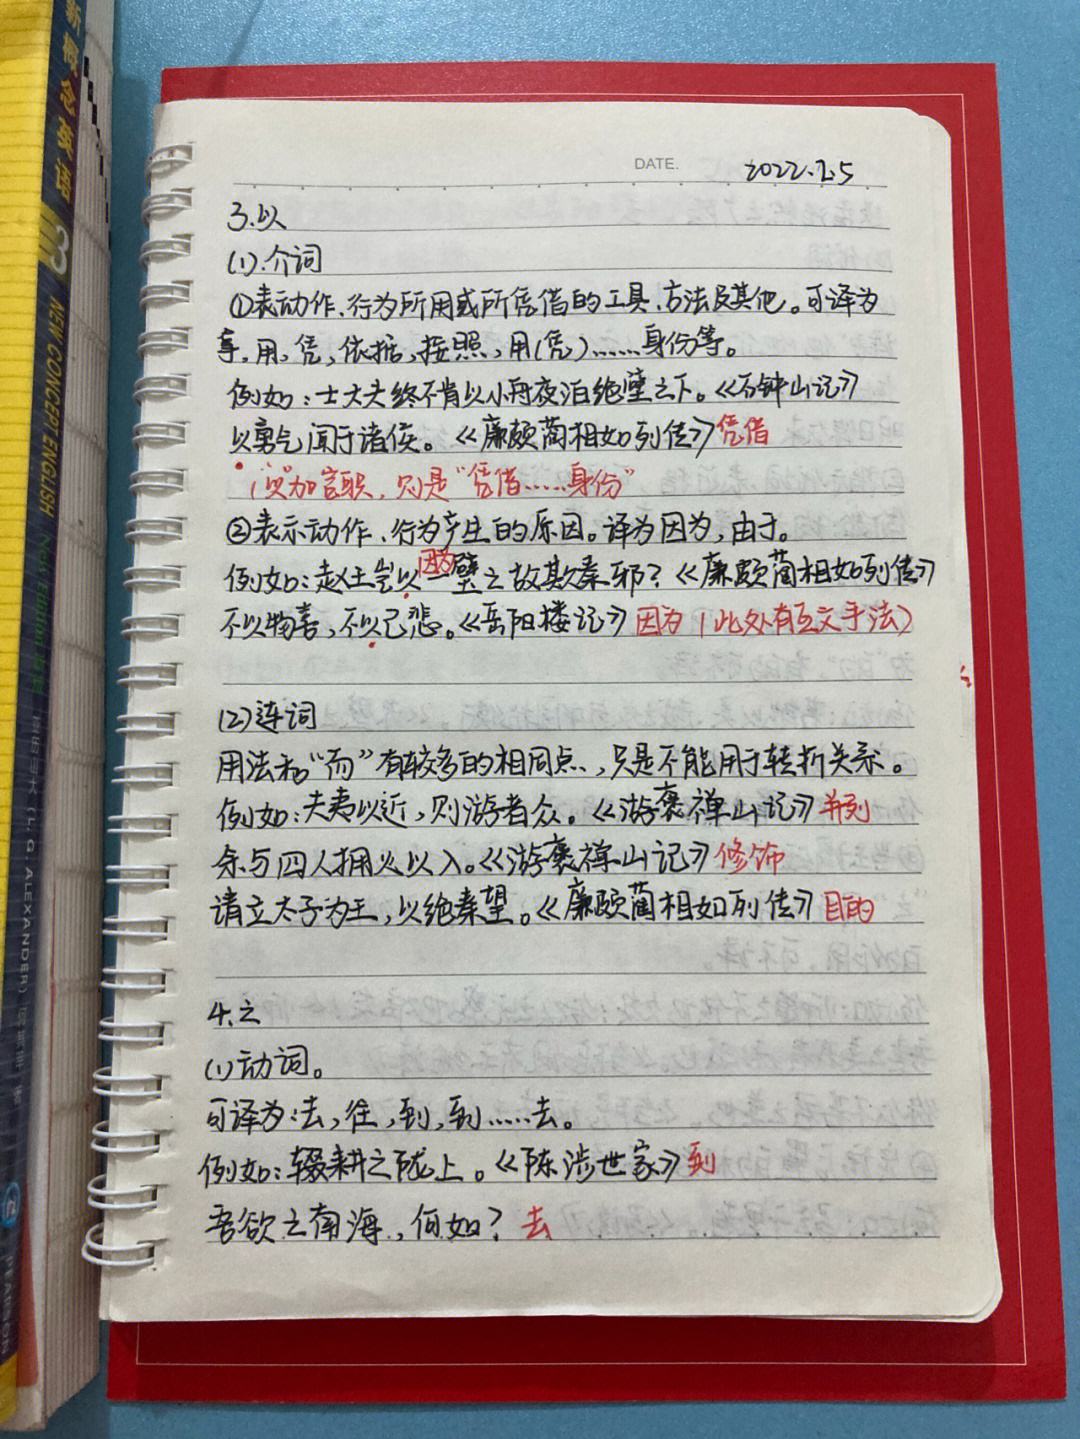 新概念英语
3
NEW CONCEPT ENGLISH
New Edition
(L. G. ALEXANDER)
PEARSON
DATE.
2022.2.5
3.以
(1).介词
①表动作、行为所用或所凭借的工具、方法及其他。可译为
拿,用,凭,依据,按照,用(凭)……身份等。
例如:士大夫终不肯以小舟夜泊绝壁之下。《石钟山记》
以勇气闻于诸侯。《廉颇蔺相如列传》凭借
("以"加官职,则是"凭借……身份"
②表示动作、行为产生的原因。译为因为,由于。
因为
例如:赵王岂以一璧之故欺秦邪?《廉颇蔺相如列传》
不以物喜,不以己悲。《岳阳楼记》因为(此处有互文手法)
(2)连词
用法和"而"有较多的相同点,只是不能用于转折关系。
例如:夫夷以近,则游者众。《游褒禅山记》并列
余与四人拥火以入。《游褒禅山记》修饰
请立太子为王,以绝秦望。《廉颇蔺相如列传》目的
4.之
(1)动词。
可译为:去,往,到,到……去。
例如:辍耕之陇上。《陈涉世家》到
吾欲之南海,何如?去